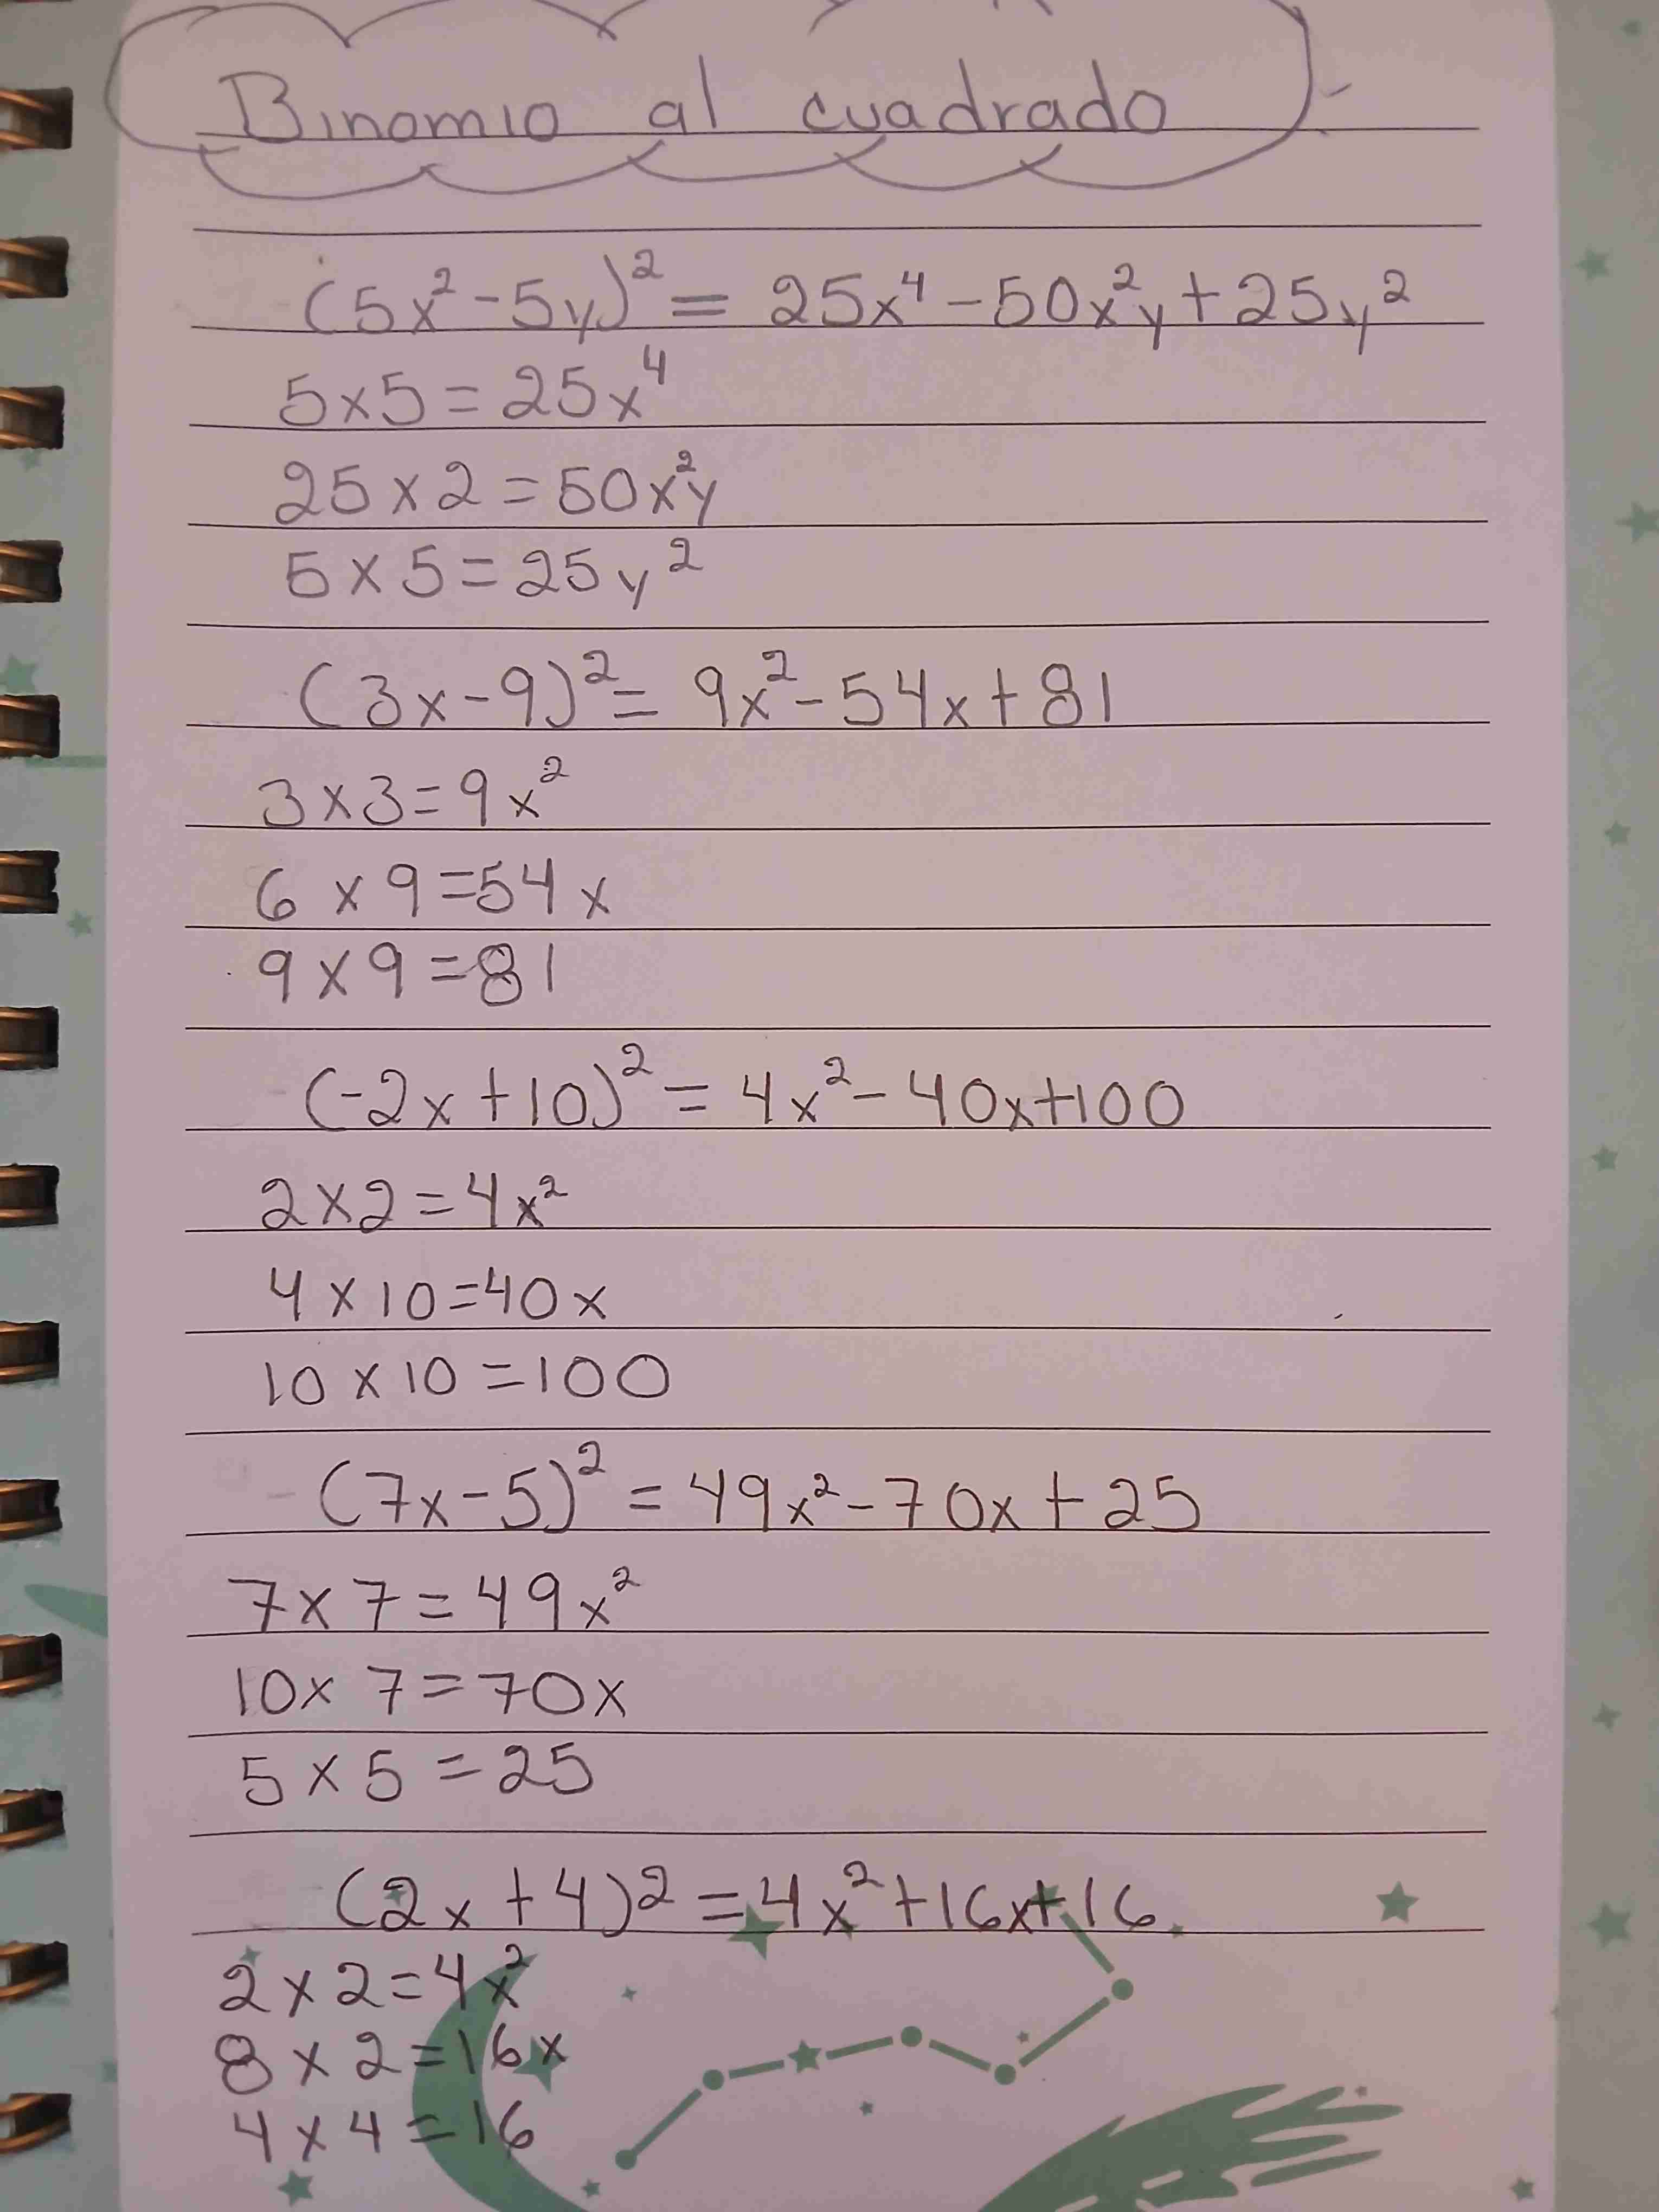 Binomio al cuadrado
(5x² - 5y)² = 25x⁴ - 50x²y + 25y²
5 x 5 = 25x⁴
25 x 2 = 50x²y
5 x 5 = 25y²
(3x - 9)² = 9x² - 54x + 81
3 x 3 = 9x²
6 x 9 = 54x
9 x 9 = 81
(-2x + 10)² = 4x² - 40x + 100
2 x 2 = 4x²
4 x 10 = 40x
10 x 10 = 100
(7x - 5)² = 49x² - 70x + 25
7 x 7 = 49x²
10 x 7 = 70x
5 x 5 = 25
(2x + 4)2 = 4x² + 16x + 16
2 x 2 = 4x²
8 x 2 = 16x
4 x 4 = 16